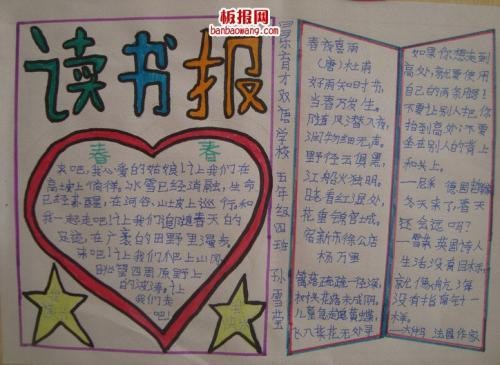 板报网
banbaowang.com
读书报
春 春
来吧，我心爱的姑娘！让我们在
高坡上徜徉。冰雪已经消融，生命
已经苏醒，在河谷、山坡上巡行。和
我一起走吧！让我们追随春天的
足迹，在广袤的田野里漫步。
来吧！让我们爬上山冈
眺望四周原野上
的波涛。让
我们去
吧！
双语学校
五年级四班
孙雪莹
春夜喜雨
(唐)杜甫
好雨知时节，
当春乃发生。
随风潜入夜，
润物细无声。
野径云俱黑，
江船火独明。
晓看红湿处，
花重锦官城。
宿新市徐公店
杨万里
篱落疏疏一径深，
树头花落未成阴。
儿童急走追黄蝶，
飞入菜花无处寻。
如果你想走到
高处，就要使用
自己的两条腿！
不要让别人把你
抬到高处；不要
坐在别人的背上
和头上。
冬天来了，春天
还会远吗？
——雪莱 英国诗人
生活没有目标，
就像航海
没有指南针一
样。
法国作家